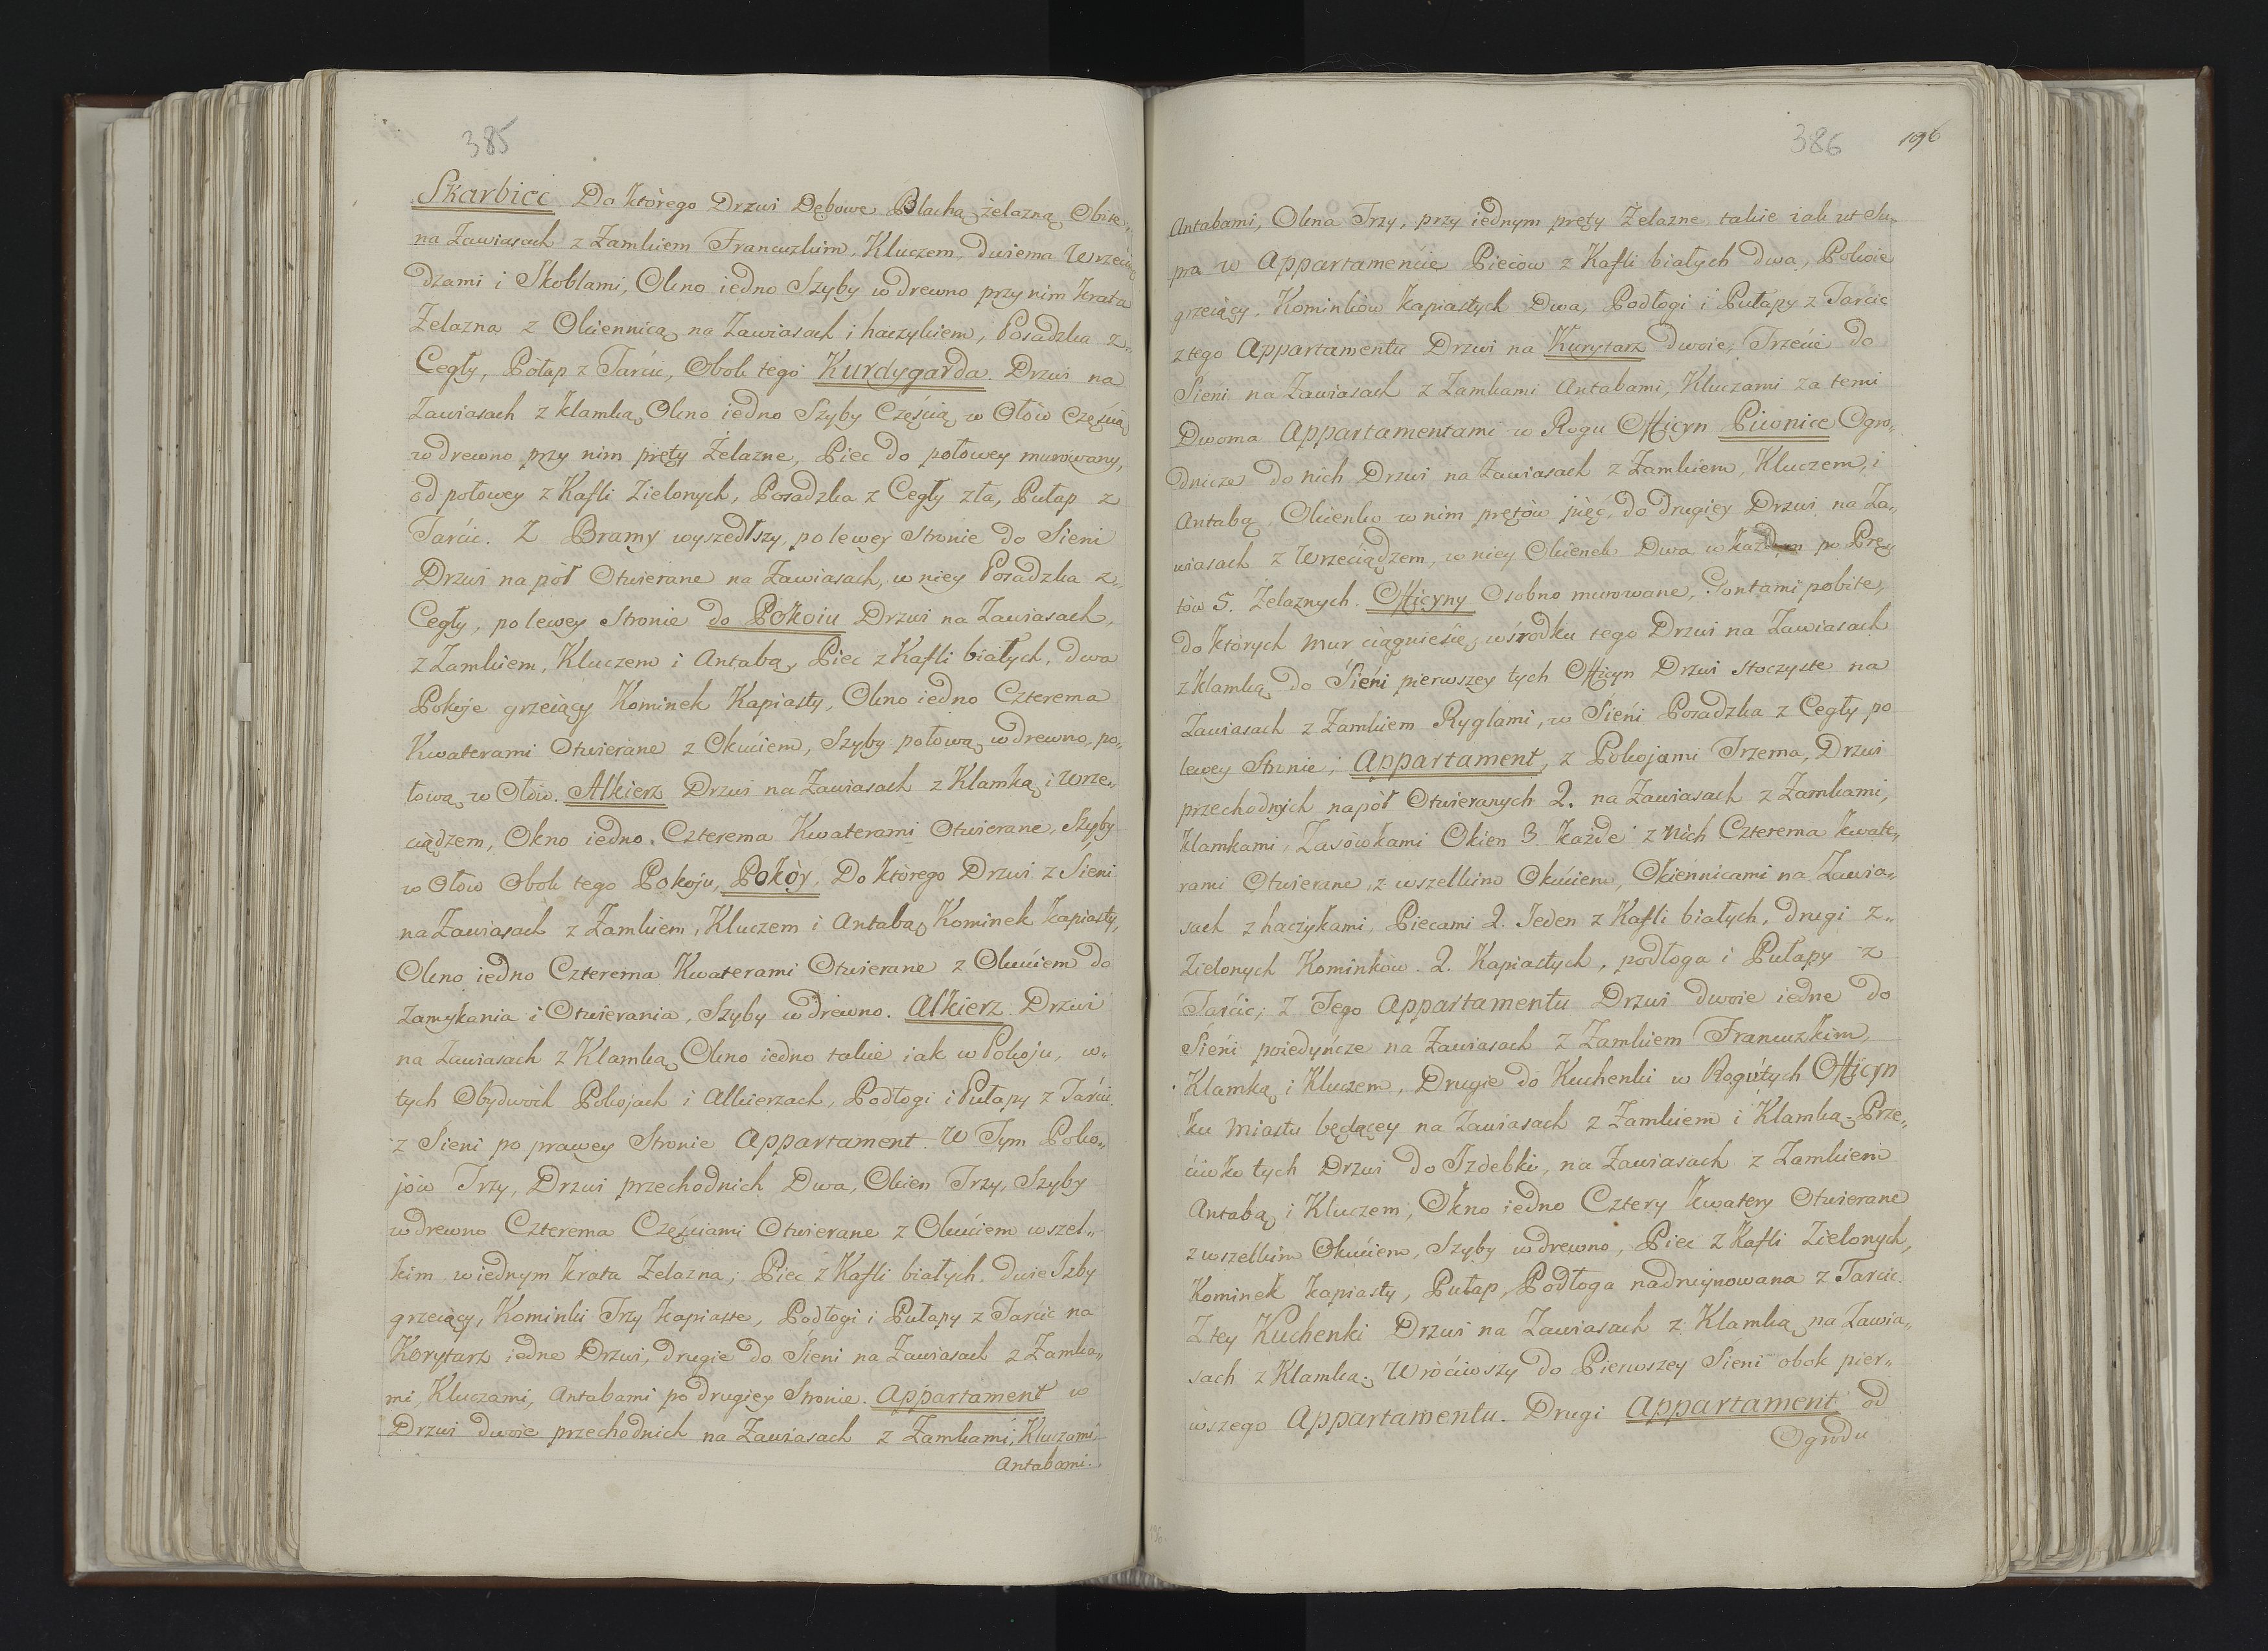 385
Skarbiec Do którego Drzwi Dębowe Blachą żelazną Obite„
na Zawiasach z Zamkiem Francuzkim, Kluczem, dwiema Wrzecią„
dzami i Skoblami, Okno iedno Szyby w drewno przy nim krata
Żelazna z Okiennicą na Zawiasach i haczykiem, Posadzka z„
Cegły, Połap z Tarcic, Obok tego Kurdygarda. Drzwi na
Zawiasach z klamką, Okno iedno Szyby Częścią w Ołów Częścią
w drewno przy nim pręty Żelazne, Piec do połowey murowany,
od połowey z Kafli Zielonych, Posadzka z Cegły zła, Pułap z
Tarcic. Z Bramy wyszedłszy, po lewey Stronie do Sieni
Drzwi na pół Otwierane na Zawiasach, w niey Posadzka z„
Cegły, po lewey Stronie do Pokoiu Drzwi na Zawiasach,
z Zamkiem, Kluczem i Antabą, Piec z Kafli białych, dwa
Pokoje grzeiący Kominek Kapiasty, Okno iedno Czterema
Kwaterami Otwierane z Okuciem, Szyby połową w drewno, po„
łową w Ołów. Alkierz Drzwi na Zawiasach z Klamką i Wrze„
ciądzem, Okno iedno. Czterema Kwaterami Otwierane, Szyby
w Ołów Obok tego Pokoju, Pokóy, Do którego Drzwi z Sieni
na Zawiasach z Zamkiem, Kluczem i Antabą, Kominek kapiasty,
Okno iedno Czterema Kwaterami Otwierane z Okuciem do
Zamykania i Otwierania, Szyby w drewno. Alkierz Drzwi
na Zawiasach z Klamką, Okno iedno takie iak w Pokoju, w„
tych Obydwóch Pokojach i Alkierzach, Podłogi i Pułapy z Tarcic
z Sieni po prawey Stronie Appartament. W Tym Poko„
jów Trzy, Drzwi przechodnich Dwa, Okien Trzy, Szyby
w drewno Czterema Częściami Otwierane z Okuciem wszel„
kim w iednym krata Żelazna; Piec z Kafli białych, dwie Izby
grzeiący, Kominki Trzy kapiaste, Podłogi i Pułapy z Tarcic na
Korytarz iedne Drzwi, drugie do Sieni na Zawiasach z Zamka„
mi, Kluczami, Antabami po drugiey Stronie. Appartament w
Drzwi dwoie przechodnich na Zawiasach z Zamkami, Kluczami
Antabami.
386 196
Antabami, Okna Trzy, przy iednym pręty Żelazne takie iak ut Su„
pra w Appartamencie Pieców z Kafli białych dwa, Pokoie
grzeiący, Kominków kapiastych Dwa, Podłogi i Pułapy z Tarcic
z tego Appartamentu Drzwi na Kurytarz dwoie, Trzecie do
Sieni na Zawiasach z Zamkami Antabami, Kluczami za temi
Dwoma Appartamentami w Rogu Officyn Piwnice Ogro„
dnicze do nich Drzwi na Zawiasach z Zamkiem, Kluczem, i
Antabą, Okienko w nim prętów pięć, do drugiey Drzwi na Za„
wiasach z Wrzeciądzem, w niey Okienek Dwa w każdem po Prę„
tów 5. Żelaznych. Officyny Osobno murowane, Gontami pobite,
do których mur ciągnie się, w środku tego Drzwi na Zawiasach
z klamką, do Sieni pierwszey tych Officyn Drzwi stoczyste na
Zawiasach z Zamkiem Ryglami, w Sieni Posadzka z Cegły po
lewey Stronie; Appartament, z Pokojami Trzema, Drzwi
przechodnych napół Otwieranych 2. na Zawiasach z Zamkami,
klamkami, Zasówkami Okien 3. każde z nich Czterema kwate„
rami Otwierane, z wszelkim Okuciem, Okiennicami na Zawia„
sach z haczykami, Piecami 2. Jeden z Kafli białych, drugi z„
Zielonych Kominków. 2. Kapiastych, podłoga i Pułapy z
Tarcic; Z Tego Appartamentu Drzwi dwoie iedne do
Sieni poiedyńcze na Zawiasach z Zamkiem Francuzkim,
Klamką i Kluczem, Drugie do Kuchenki w Rogu tych Officyn
ku Miastu będącey na Zawiasach z Zamkiem i Klamką. Prze„
ciwko tych Drzwi do Izdebki, na Zawiasach z Zamkiem
Antabą i Kluczem, Okno iedno Cztery kwatery Otwierane
z wszelkim Okuciem, Szyby w drewno, Piec z Kafli Zielonych,
Kominek kapiasty, Pułap, Podłoga nadruynowana z Tarcic.
Z tey Kuchenki Drzwi na Zawiasach z Klamką na Zawia„
sach z Klamką. Wróciwszy do Pierwszey Sieni obok pier„
wszego Appartamentu. Drugi Appartament od
Ogrodu